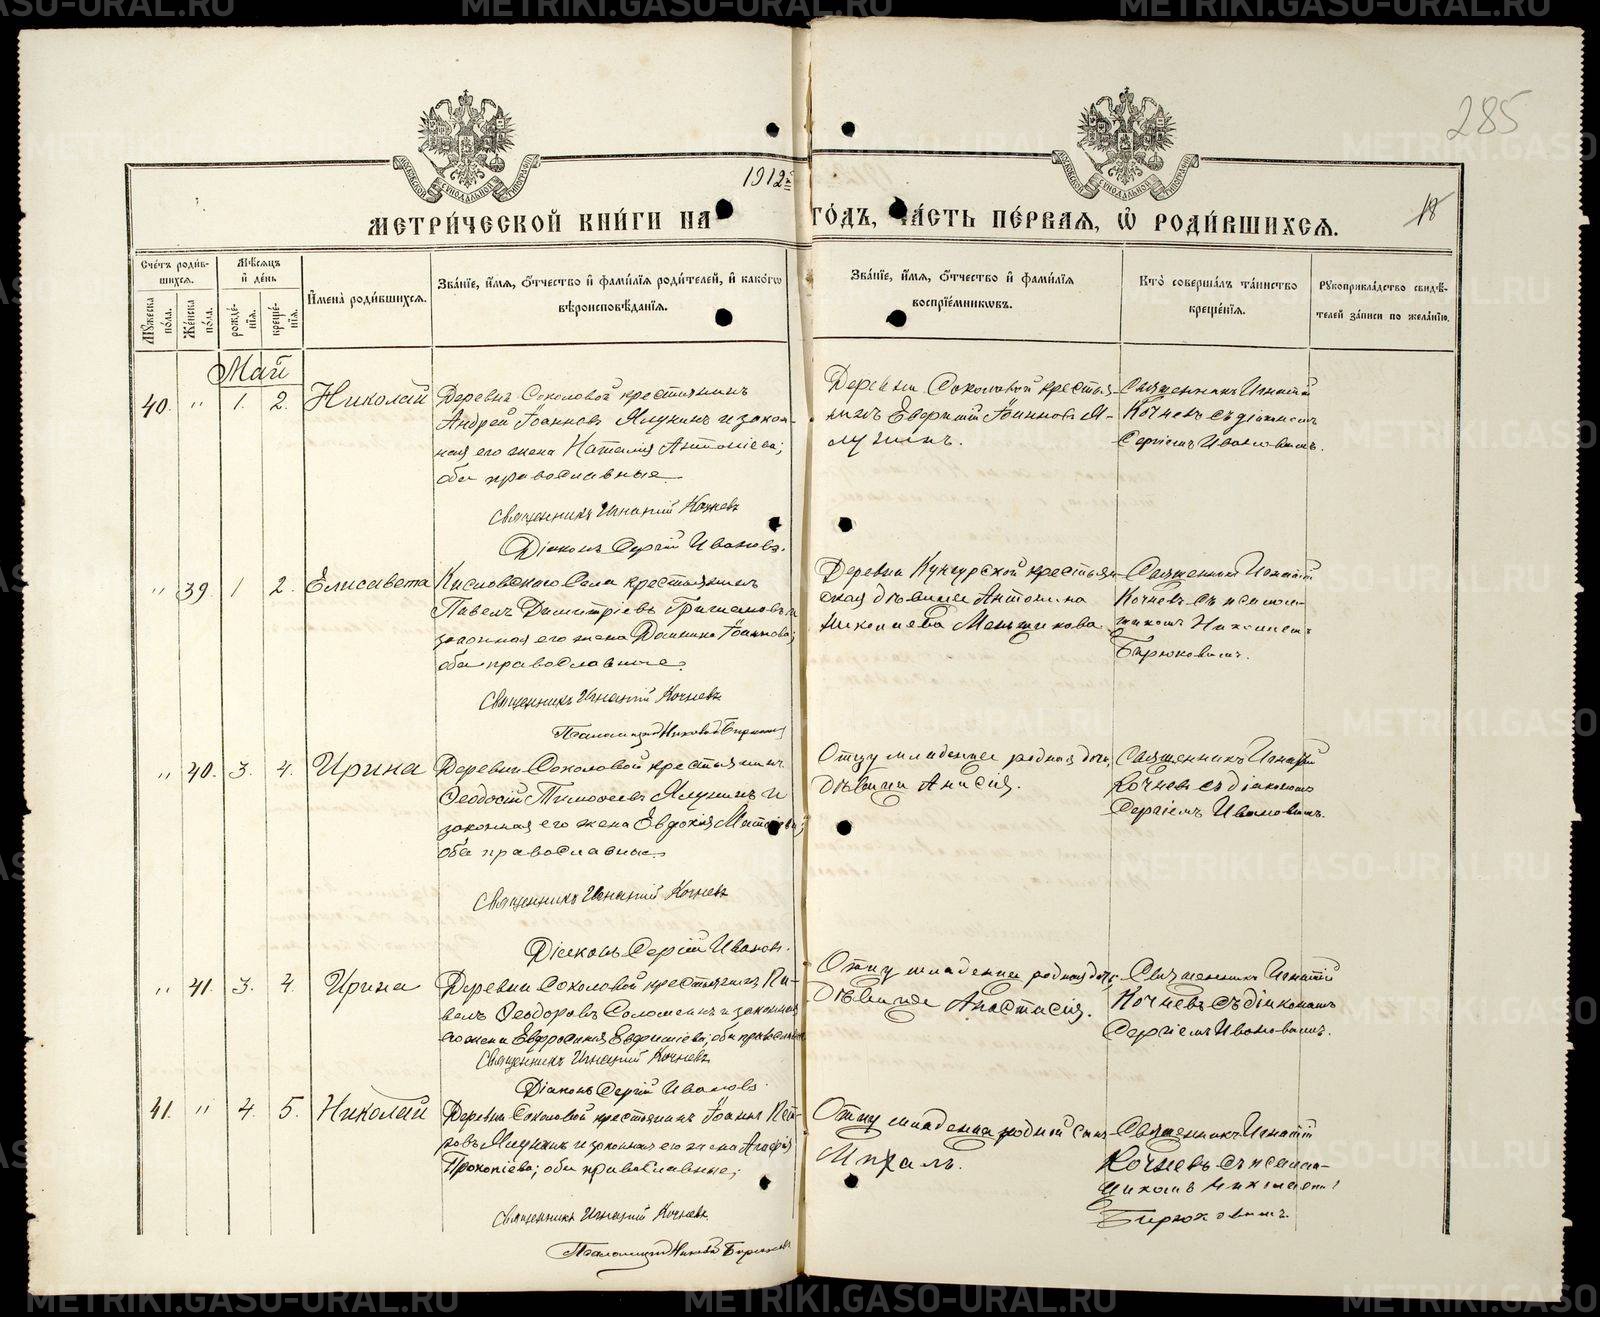 285
18
1912 г
МЕТРИ́ЧЕСКОЙ КНИ́ГИ НА ГО́ДЪ, ЧА́СТЬ ПЕ́РВАЯ, Ѡ РОДИ́ВШИХСЯ.
Сче́тъ роди́вшихся.
Мꙋ́жеска по́ла.
Же́нска по́ла.
Мѣ́сяцъ и де́нь
рожде́нїя.
креще́нїя.
И҆мена̀ роди́вшихся.
Зва́нїе, и҆́мя, ѻ҆́тчество и҆ фами́лїя роди́телей, и҆ како́гѡ
вѣроисповѣ́данїя.
Зва́нїе, и҆́мя, ѻ҆́тчество и҆ фами́лїя
воспрїе́мникѡвъ.
Кто̀ соверша́лъ та́инство
креще́нїя.
Рꙋкоприкла́дство свидѣ́-
телей за́писи по жела́нїю.
Май
40. " 1. 2. Николай
Деревни Соколовой крестьянинъ
Андрей Іоанновъ Ялунинъ и закон-
ная его жена Наталія Антоніева;
оба православные
Священникъ Игнатій Кочневъ
Діаконъ Сергій Ивановъ.
Деревни Соколовой крестья-
нинъ Евфимій Іоанновъ Я-
лунинъ.
Священникъ Игнатій
Кочневъ съ діакономъ
Сергіемъ Ивановымъ.
" 39. 1 2. Елисавета
Кисловского Села крестьянинъ
Павелъ Димитріевъ и
законная его жена Домника Іоаннова;
оба православные.
Священникъ Игнатій Кочневъ
Псаломщикъ Николай Бирюковъ
Деревни Кунгурской крестьян-
ская дѣвица Антонина
Николаева Меньшикова
Священникъ Игнатій
Кочневъ съ псалом-
щикомъ Николаемъ
Бирюковымъ.
" 40. 3. 4. Ирина
Деревни Соколовой крестьянинъ
Ѳеодосій Тимоѳеевъ Ялунинъ и
законная его жена Евдокія
оба православные.
Священникъ Игнатій Кочневъ
Діаконъ Сергій Ивановъ.
Отцу младенца родная дочь,
дѣвица Анисія.
Священникъ Игнатій
Кочневъ съ діакономъ
Сергіемъ Ивановымъ.
" 41. 3. 4. Ирина
Деревни Соколовой крестьянинъ Па-
велъ Ѳеодоровъ Соломеинъ и законная
его жена Евфросинія Евфиміева; оба православные
Священникъ Игнатій Кочневъ
Діаконъ Сергій Ивановъ.
Отцу младенца родная дочь,
дѣвица Анастасія.
Священникъ Игнатій
Кочневъ съ діакономъ
Сергіемъ Ивановымъ.
41. " 4. 5. Николай
Деревни Соколовой крестьянинъ Іоаннъ Пет-
ровъ Ялунинъ и законная его жена Агафія
Прокопіева; оба православные;
Священникъ Игнатій Кочневъ.
Псаломщикъ Николай Бирюковъ
Отцу младенца родной сынъ
Михаилъ.
Священникъ Игнатій
Кочневъ съ псалом-
щикомъ Николаемъ
Бирюковымъ.
METRIKI.GASO-URAL.RU